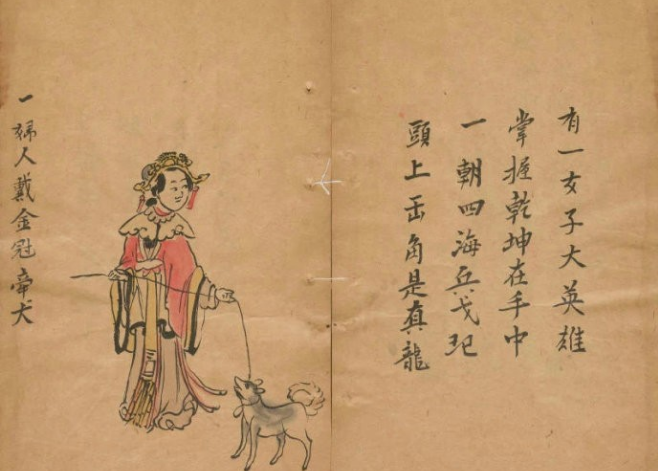 有一女子大英雄
掌握乾坤在手中
一朝四海兵戈起
頭上缶角是真龍
一婦人戴金冠帝犬